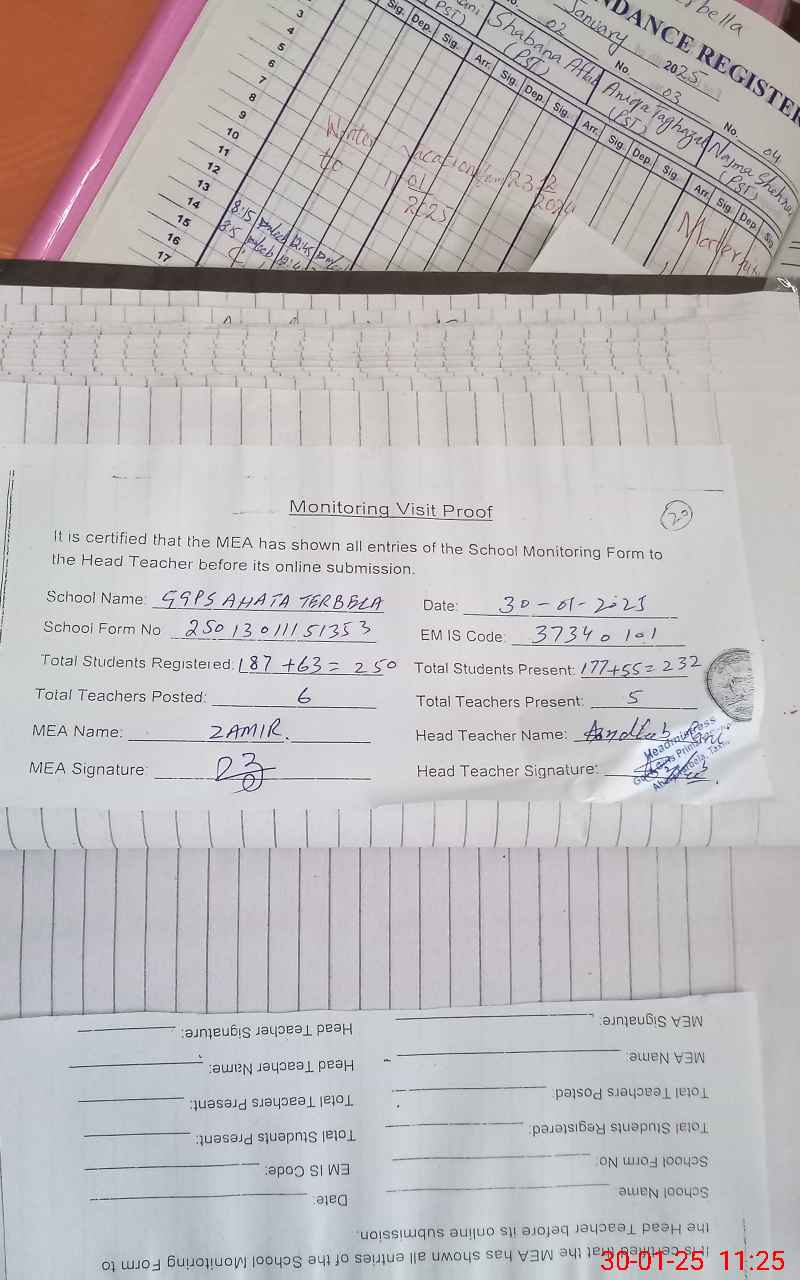 rbella
NDANCE REGISTER
January 2025
No. 02 No. 03 No. 04
Shabana Aftab Aniqa Taghazal Najma Shehnaz
(PST) (PST) (PST) (PST)
Sig. Dep. Sig. Arr. Sig. Dep. Sig. Arr. Sig. Dep. Sig. Arr. Sig. Dep. Sig.
3
4
5
6
7
8
9
10
11
12
13
14
15
16
17
Winter vacation from 23 12 2024
to 01 2025
8:15 12:45
8:15
Monitoring Visit Proof
20
It is certified that the MEA has shown all entries of the School Monitoring Form to
the Head Teacher before its online submission.
School Name: GGPS AHATA TERBELA Date: 30-01-2025
School Form No 25013011151353 EM IS Code: 37340101
Total Students Registered: 187 + 63 = 250 Total Students Present: 177+55=232
Total Teachers Posted: 6 Total Teachers Present: 5
MEA Name: ZAMIR. Head Teacher Name:
MEA Signature: Head Teacher Signature:
Headmistress
It is certified that the MEA has shown all entries of the School Monitoring Form to
the Head Teacher before its online submission.
School Name Date:
School Form No: EM IS Code:
Total Students Registered: Total Students Present:
Total Teachers Posted: Total Teachers Present:
MEA Name: Head Teacher Name:
MEA Signature: Head Teacher Signature:
30-01-25 11:25